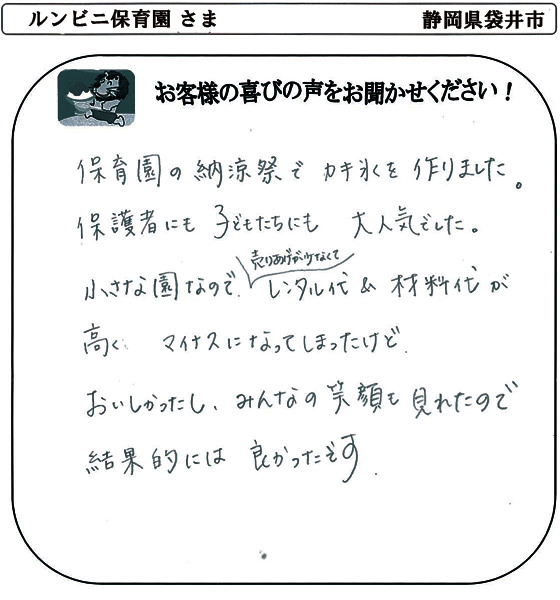 ルンビニ保育園 さま 静岡県袋井市
お客様の喜びの声をお聞かせください！
保育園の納涼祭で カキ氷を 作りました。
保護者にも 子どもたちにも 大人気でした。
売りあげが少なくて
小さな園なので、レンタル代 & 材料代が
高く マイナスになってしまったけど、
おいしかったし、みんなの笑顔も見れたので
結果的には 良かったです。